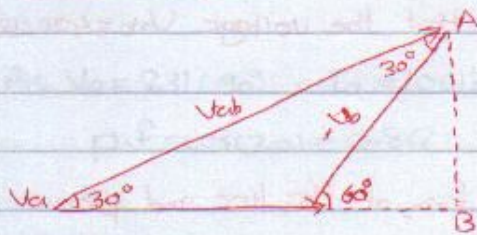 A
30°
Vab
-Vb
Va
30°
60°
B